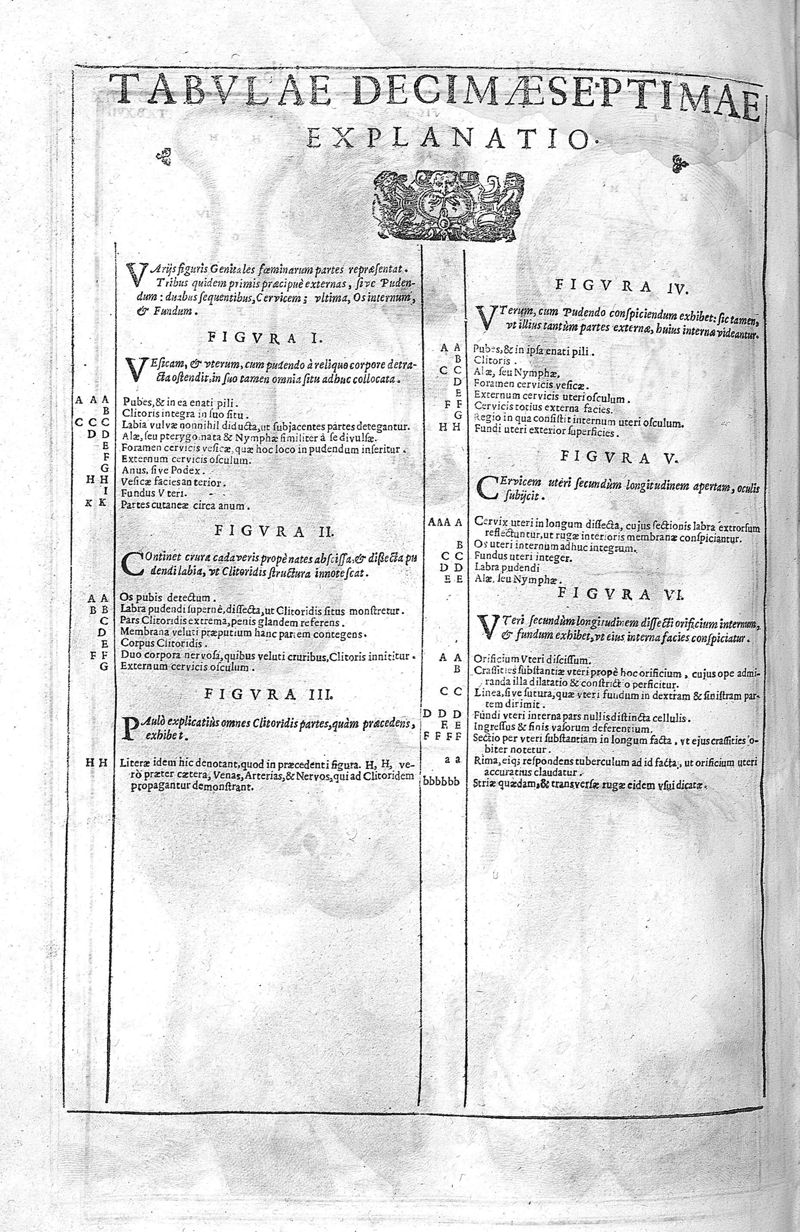 TABVLAE DECIMÆSEPTIMAE
EXPLANATIO.
VArijs figuris Genitales fœminarum partes repræsentat.
Tribus quidem primis præcipuè externas, sive Puden-
dum: duabus sequentibus, Cervicem; vltima, Os internum,
& Fundum.
FIGVRA I.
VEsicam, & vterum, cum pudendo à reliquo corpore detra-
cta ostendit, in suo tamen omnia situ adhuc collocata.
A A A Pubes, & in ea enati pili.
B Clitoris integra in suo situ.
C C C Labia vulvæ nonnihil diducta, ut subjacentes partes detegantur.
D D Alæ, seu pterygomata & Nymphæ similiter à se divulsæ.
E Foramen cervicis vesicæ, quæ hoc loco in pudendum inseritur.
F Externum cervicis osculum.
G Anus, sive Podex.
H H Vesicæ facies anterior.
I Fundus Vteri.
K K Partes cutaneæ circa anum.
FIGVRA II.
COntinet crura cadaveris propè nates abscissa, & dissecta pu
dendi labia, vt Clitoridis structura innotescat.
A A Os pubis detectum.
B B Labra pudendi supernè, dissecta, ut Clitoridis situs monstretur.
C Pars Clitoridis extrema, penis glandem referens.
D Membrana veluti præputium hanc partem contegens.
E Corpus Clitoridis.
F F Duo corpora nervosa, quibus veluti cruribus, Clitoris innititur.
G Externum cervicis osculum.
FIGVRA III.
PAulò explicatiùs omnes Clitoridis partes, quàm præcedens,
exhibet.
H H Literæ idem hic denotant, quod in præcedenti figura. H, H, ve-
rò præter cætera, Venas, Arterias, & Nervos, qui ad Clitoridem
propagantur demonstrant.
FIGVRA IV.
VTerum, cum Pudendo conspiciendum exhibet: sic tamen,
vt illius tantùm partes externæ, huius internæ videantur.
A A Pubes, & in ipsa enati pili.
B Clitoris.
C C Alæ, seu Nymphæ.
D Foramen cervicis vesicæ.
E Externum cervicis uteri osculum.
F F Cervicis totius externa facies.
G Regio in qua consistit internum uteri osculum.
H H Fundi uteri exterior superficies.
FIGVRA V.
CErvicem uteri secundùm longitudinem apertam, oculis
subijcit.
A A A A Cervix uteri in longum dissecta, cujus sectionis labra extrorsum
reflectuntur, ut rugæ interioris membranæ conspiciantur.
B Os uteri internum adhuc integrum.
C C Fundus uteri integer.
D D Labra pudendi
E E Alæ, seu Nymphæ.
FIGVRA VI.
VTeri secundùm longitudinem dissecti orificium internum,
& fundum exhibet, vt eius interna facies conspiciatur.
A A Orificium Vteri discissum.
B Crassities substantiæ vteri propè hoc orificium, cujus ope admi-
randa illa dilatatio & constrictio perficitur.
C C Linea, sive sutura, quæ vteri fundum in dextram & sinistram par-
tem dirimit.
D D D Fundi vteri interna pars nullis distincta cellulis.
E E Ingressus & finis vasorum deferentium.
F F F F Sectio per vteri substantiam in longum facta, vt ejus crassities o-
biter notetur.
a a Rima, eiq; respondens tuberculum ad id facta, ut orificium uteri
accuratius claudatur.
bbbbbb Striæ quædam, & transversæ rugæ eidem vsui dicatæ.